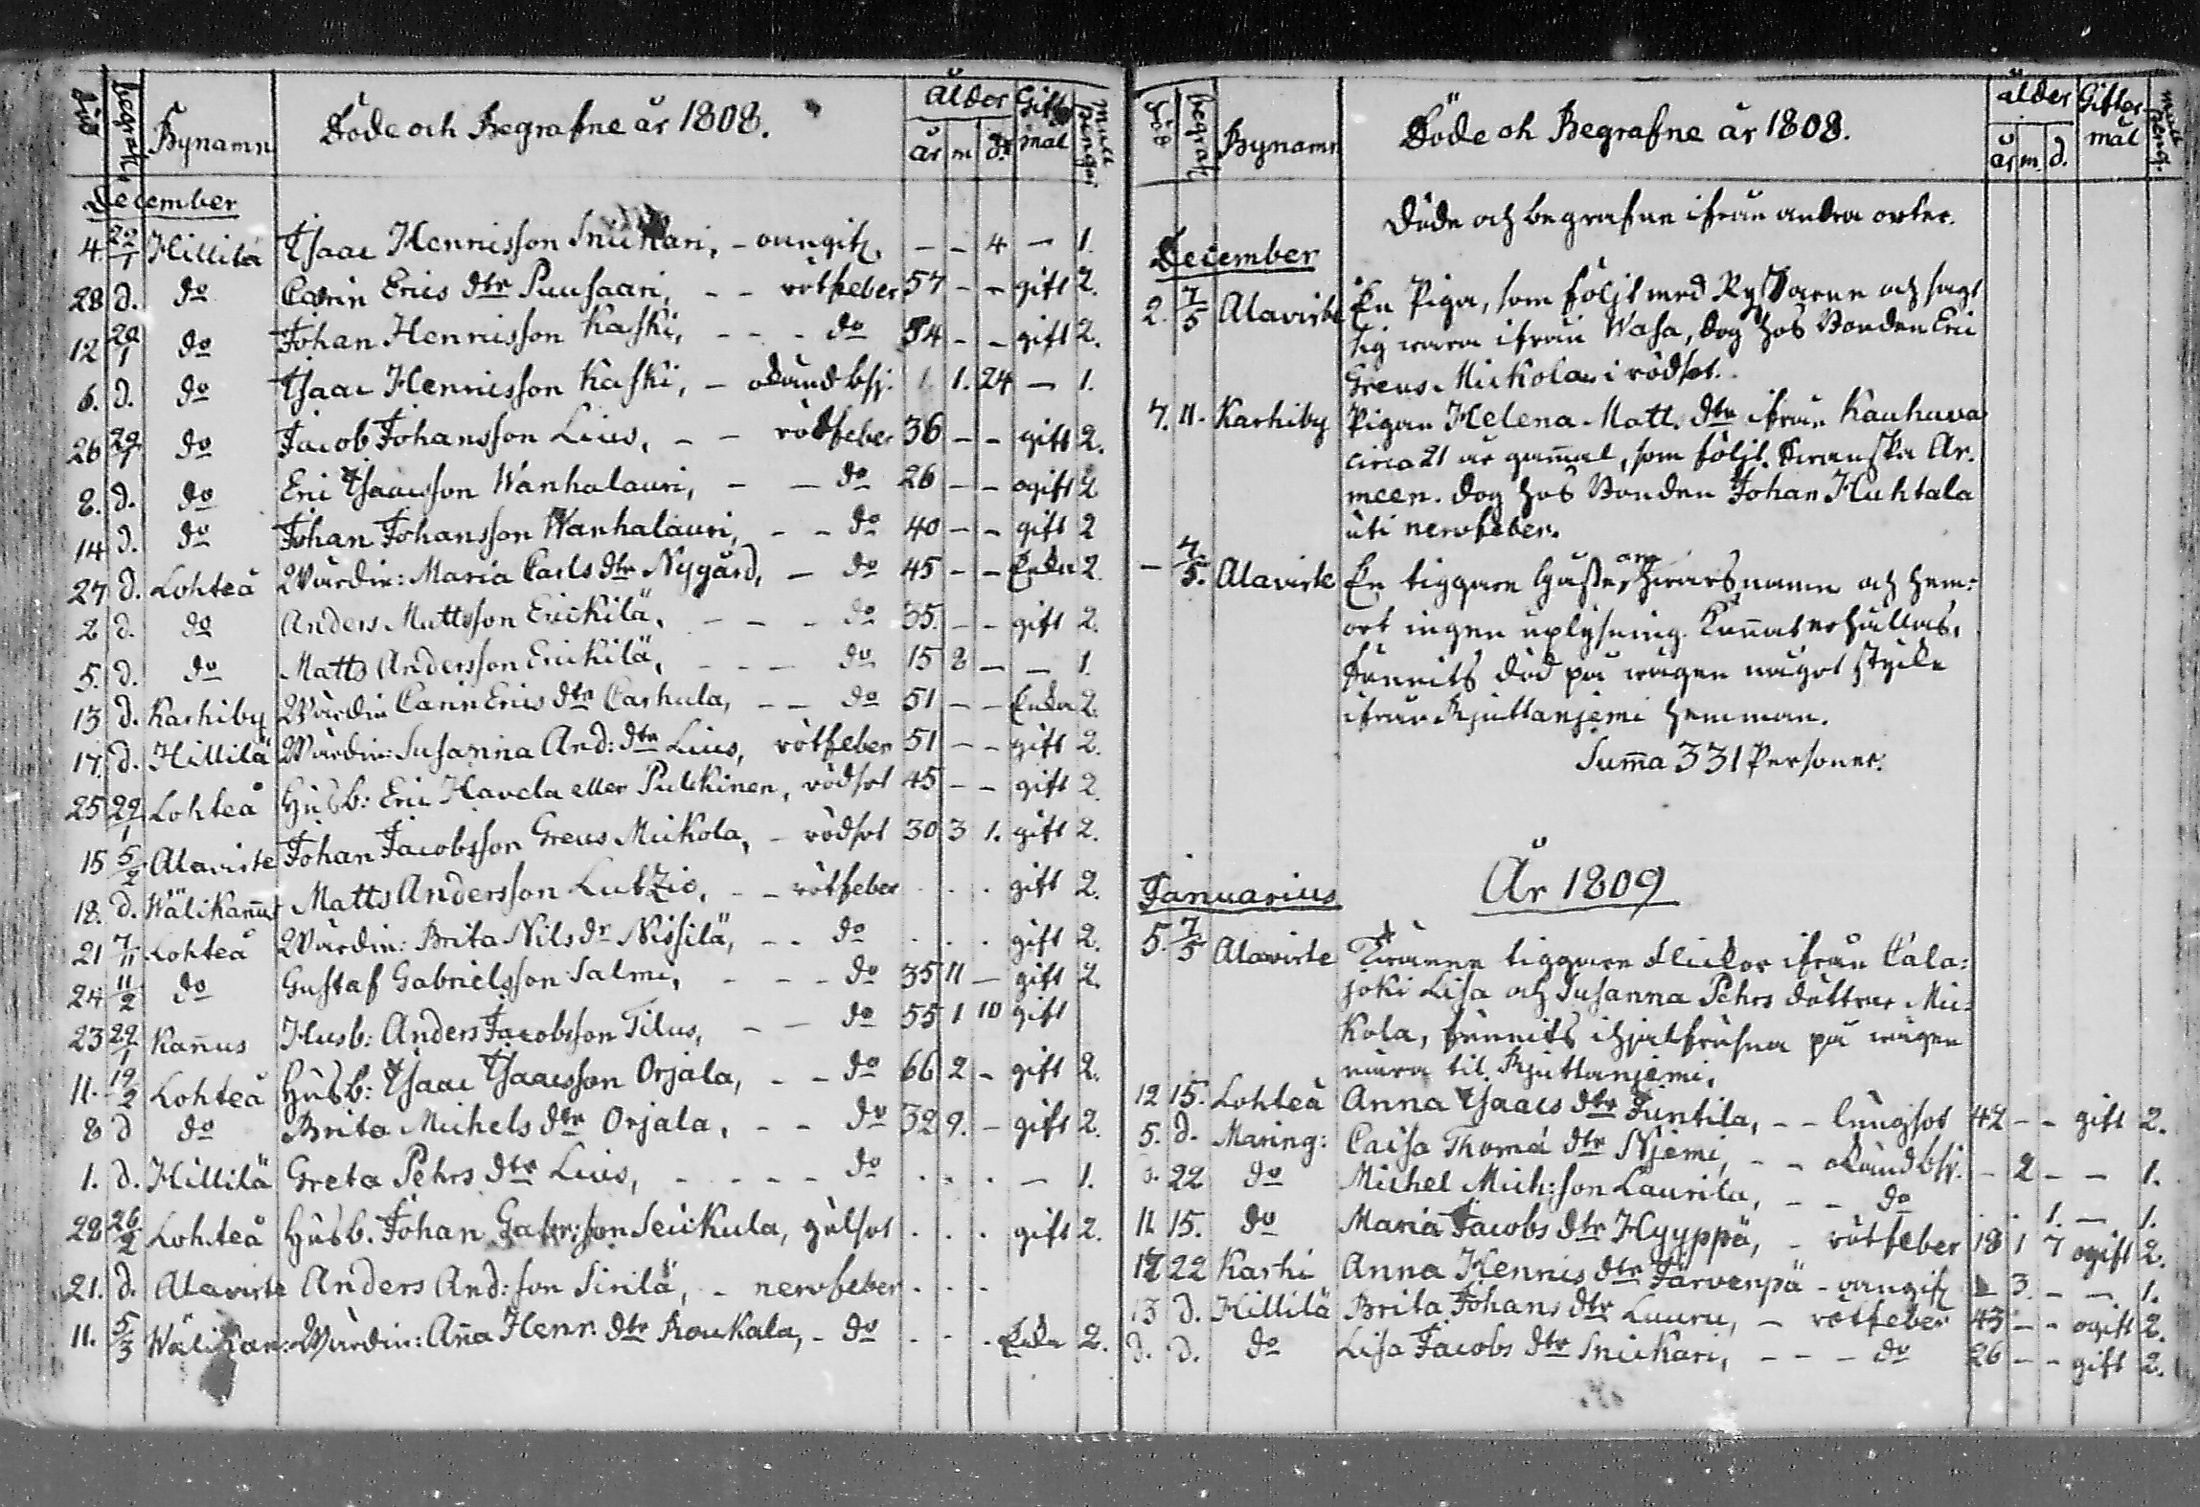 död begrafn Bynamn Döde och Begrafne år 1808. ålder år m d. Gift mål mull pengar
December
4. 29/1 Hillilä Isaac Henricsson Snickari, - oangif. - - 4 - 1.
28 d. do Carin Erics dtr Puusaari, - - rötfeber 57 - - gift 2.
12 29/1 do Johan Henricsson Kaski, - - - do 54 - - gift 2.
6. d. do Isaac Henricsson Kaski, - okänd bsj. 1. 24 - 1.
26 29/1 do Jacob Johansson Lius, - - rötfeber 36 - - gift 2.
8. d. do Eric Isaacsson Wanhalauri, - - do 26 - - ogift 2
14 d. do Johan Johansson Wanhalauri, - - do 40 - - gift 2
27 d. Lohteå Wärdin: Maria Carls dtr Nygård, - do 45 - - Enka 2.
2 d. do Anders Mattsson Erickilä, - - - do 35. - - gift 2.
5. d. do Matts Andersson Erickilä, - - - do 15 8 - - 1.
13 d. Karhiby Wärdin Carin Erics dtr Carhula, - - do 51 - - Enka 2.
17. d. Hillilä Wärdin: Susanna And: dtr Lius, rötfeber 51 - - gift 2.
25 29/1 Lohteå Husb: Eric Havela eller Pulckinen, rödsot 45 - - gift 2.
15 5/2 Alaviste Johan Jacobsson Greus Mickola, - rödsot 30 3 1. gift 2.
18. d. Wälikannus Matts Andersson Lutzio, - - rötfeber . . . gift 2.
21 7/11 Lohteå Wärdin: Brita Nils dr Nissilä, - - do . . . gift 2.
24 11/2 do Gustaf Gabrielsson Salmi, - - - do 35 11 - gift 2.
23 29/1 Kanus Husb: Anders Jacobsson Tilus, - - do 55 1 10 gift
11. 19/2 Lohteå Husb: Isaac Isaacsson Orjala, - - do 66 2 - gift 2.
8 d do Brita Michels dtr Orjala, - - do 32 9. - gift 2.
1. d. Hillilä Greta Pehrs dtr Lius, - - - - do . . . - 1.
28 26/2 Lohteå Husb. Johan Gabr:son Seickula, gulsot . . . gift 2.
21. d. Alaviste Anders And: son Sirilä, - nervfeber . . .
11. 5/3 Wälikan: Wärdin: Anna Henr. dtr Roukala, - do . . . Enka 2.
död begraf Bynamn Döde och Begrafne år 1808. ålder år m. d. Gifter mål mull peng.
Döde och begrafne ifrån andra orter.
December
2. 7/5 Alaviste En Piga, som följt med Ryssarne och sagt
sig vara ifrån Wasa, dog hos Bonden Eric
Greus Mickola i rödsot.
7. 11. Karhiby Pigan Helena Matts dtr ifrån Kauhava
circa 21 år gammal, som följt Svenska Ar-
meen. dog hos Bonden Johan Huhtala
uti nervfeber.
- 7/5. Alaviste En tiggare Gusse, om hvars namn och hem-
ort ingen uplysning kunnat erhållas,
funnits död på wägen något stycke
ifrån Hjuttanjemi hemman.
Summa 331 Personer.
År 1809
Januarius
5. 7/5 Alaviste Twänne tiggare flickor ifrån Cala-
joki Lisa och Susanna Pehrs döttrar Mic-
kola, funnits ihjelfrusna på wägen
nära til Hjuttanjemi.
12 15. Lohteå Anna Isaacs dtr Juntila, - - lungsot 42 - - gift 2.
5. d. Maring: Caisa Thoma dtr Njemi, - - okänd bsj. - 2 - - 1.
d. 22 do Michel Mich:son Laurila, - - do . . 1. - 1.
11 15. do Maria Jacobs dtr Hyyppä, - rötfeber 18 1 7 ogift 2.
12 22 Karhi Anna Henrics dtr Järvenpä - oangif. - 3. - - 1.
13 d. Hillilä Brita Johans dtr Lauru, - rötfeber 43 - - ogift 2.
d. d. do Lisa Jacobs dtr Snickari, - - - do 26 - - gift 2.